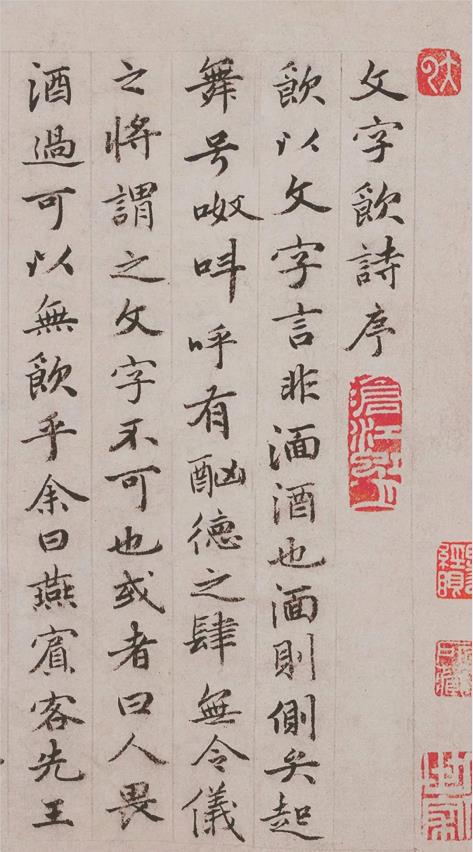 文字飲詩序
飲以文字言非湎酒也湎則側矣起
舞号呶叫呼有酗德之肆無令儀
之將謂之文字不可也或者曰人畏
酒過可以無飲乎余曰燕賓客先王